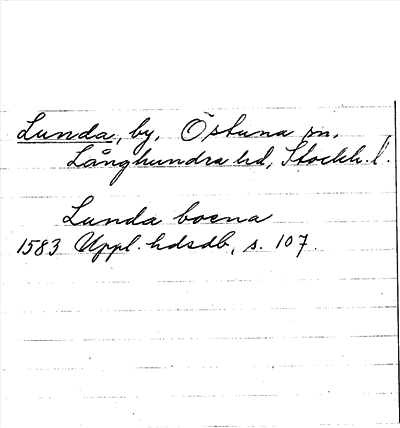 Lunda, by, Östuna sn,
Långhundra hd, Stockh. l.
Lunda boena
1583 Uppl. hdsdb, s. 107.